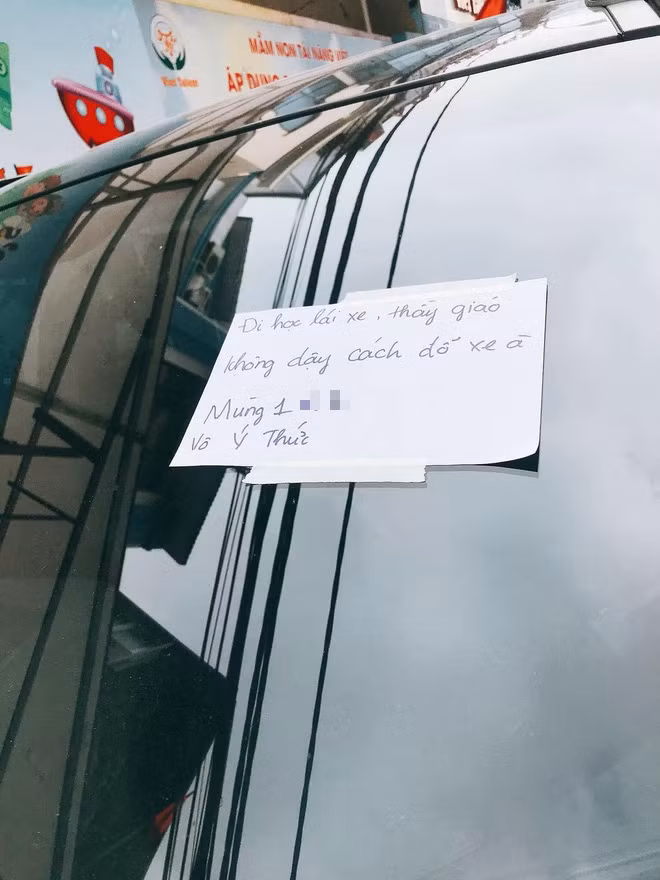 MẦM NON TÀI NĂNG VIỆT
ÁP DỤNG
Đi học lái xe, thầy giáo
không dậy cách đỗ xe à
Mùng 1
Vô Ý Thức